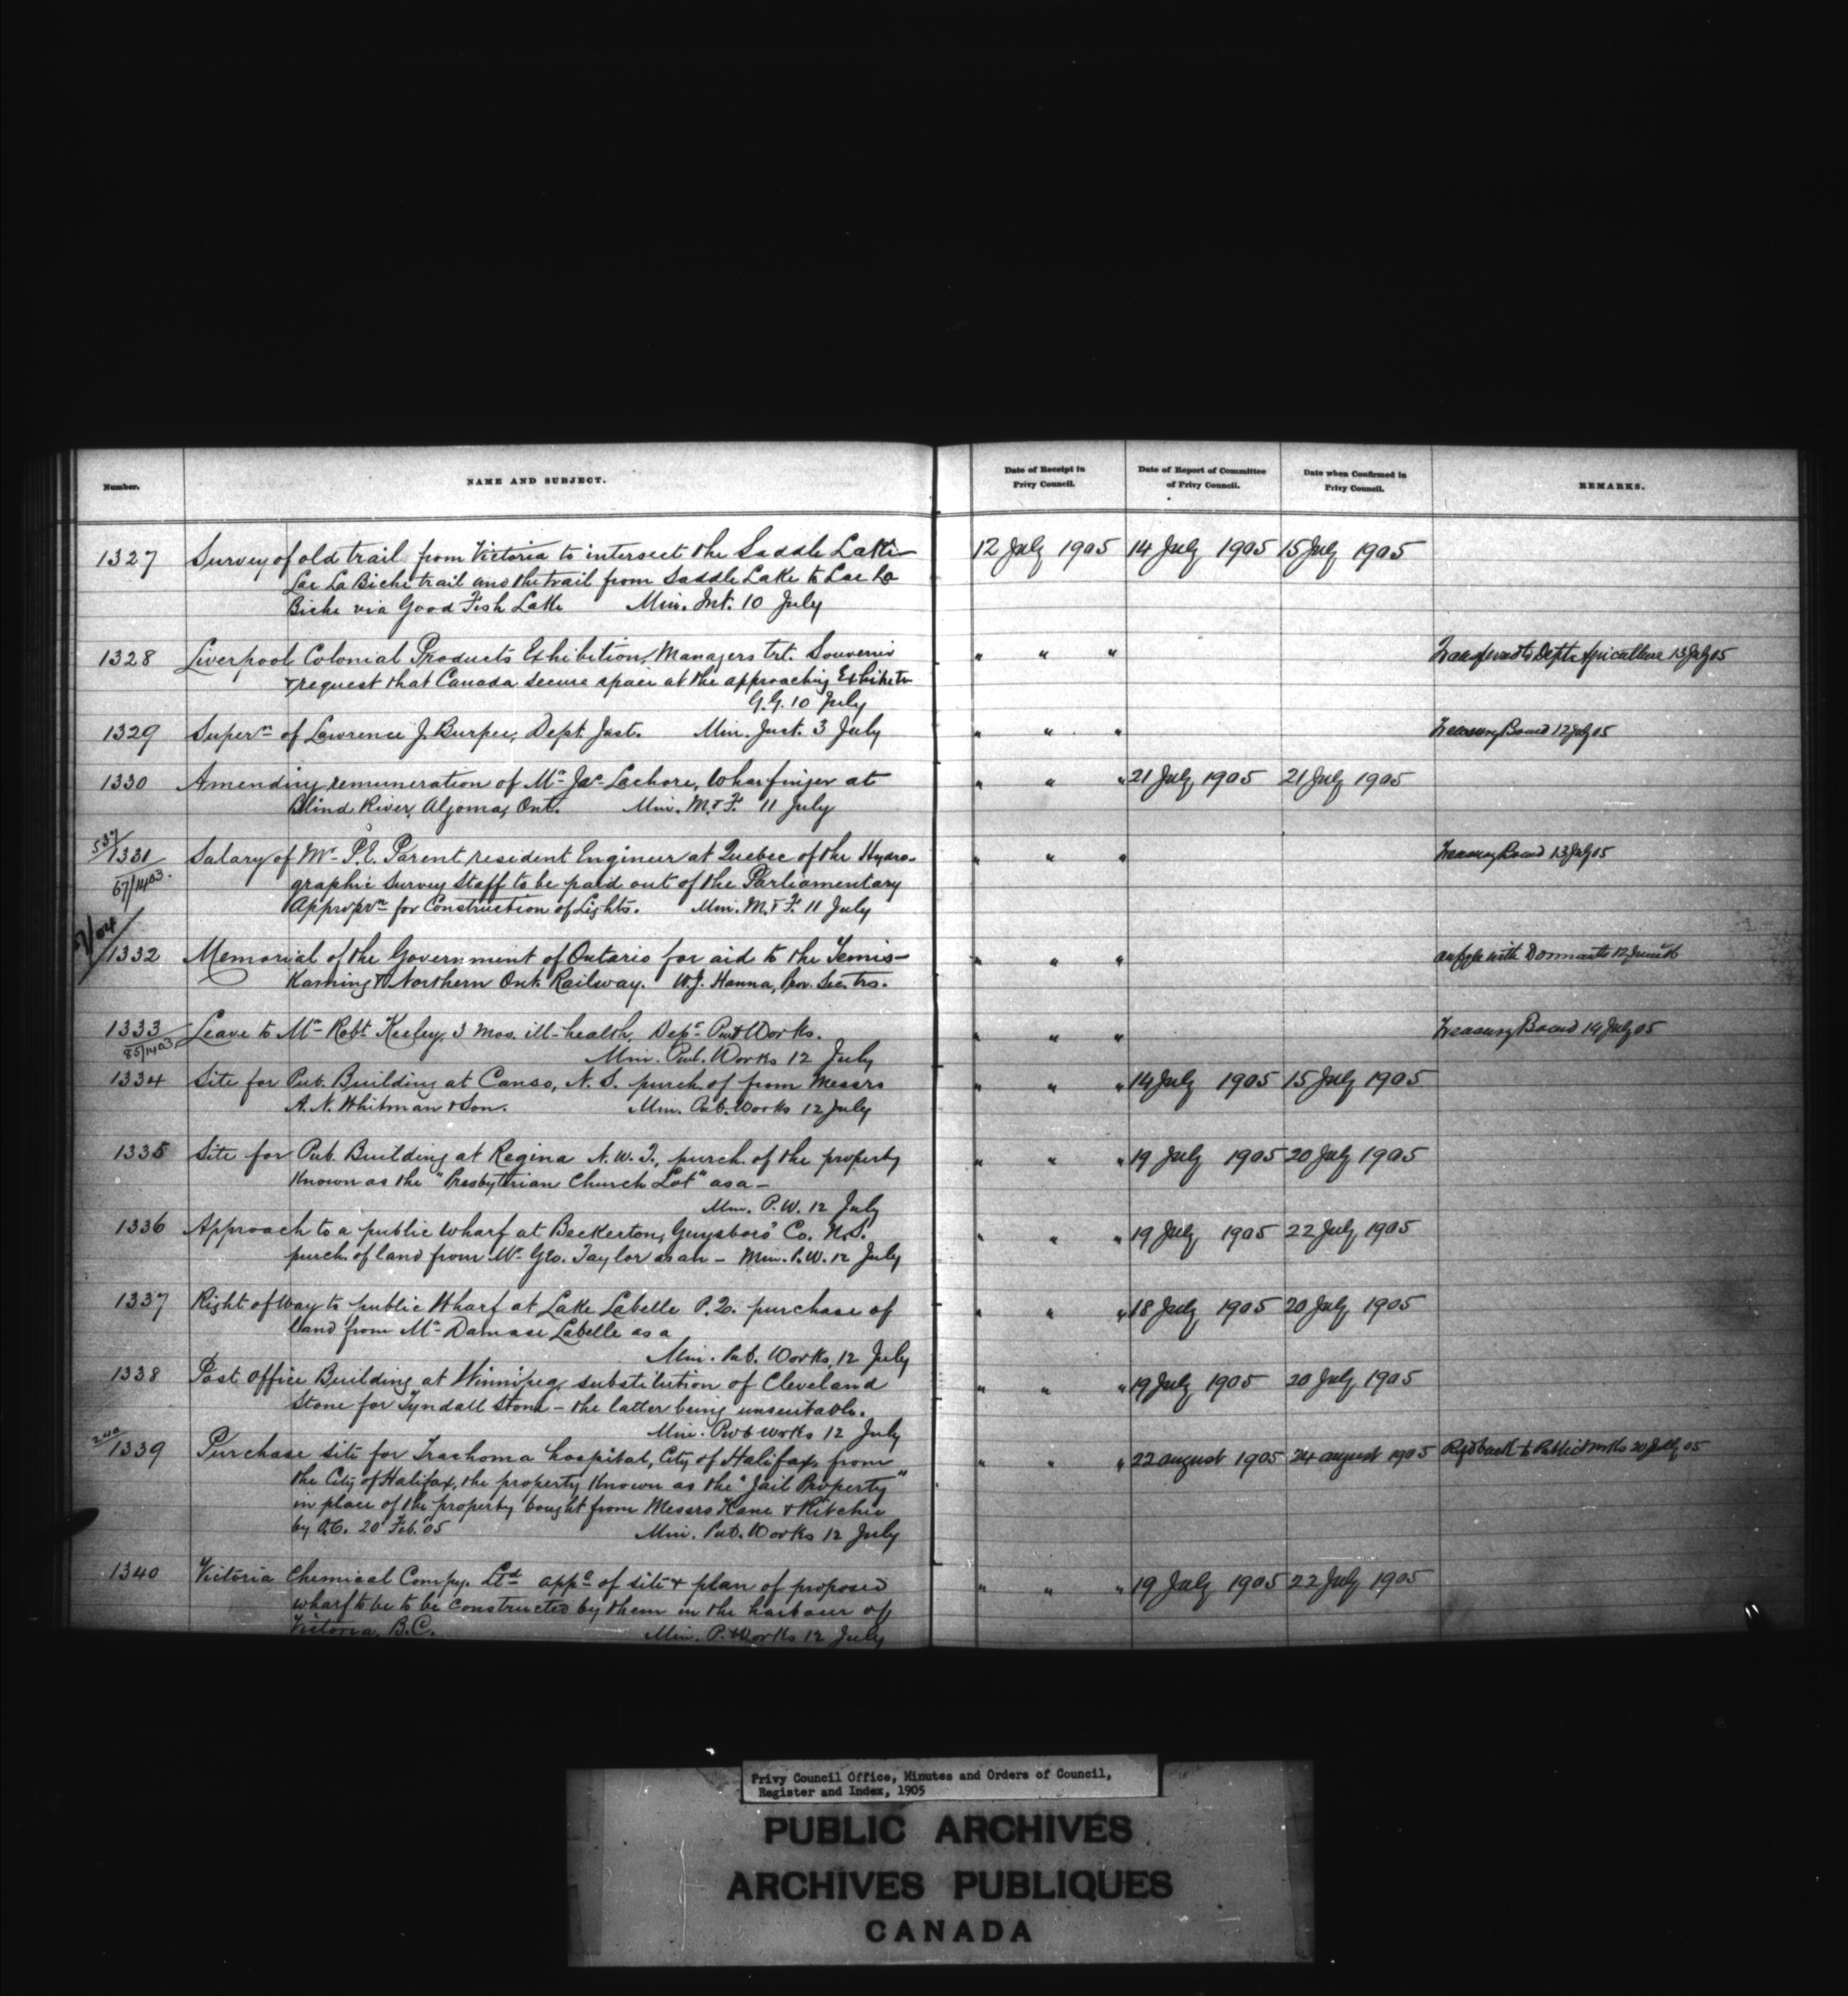 Number.
NAME AND SUBJECT.
Date of Receipt in
Privy Council.
Date of Report of Committee
of Privy Council.
Date when Confirmed in
Privy Council.
REMARKS.
1327 Survey of old trail from Victoria to intersect the Saddle Lake- 12 July 1905 14 July 1905 15 July 1905
Lac La Biche trail and the trail from Saddle Lake to Lac La
Biche via Good Fish Lake Min. Int. 10 July
1328 Liverpool Colonial Products Exhibition, Managers trt. Souvenir " " " Transferred to Dept Agriculture 13 July 05
& request that Canada secure space at the approaching Exhibitn
G.G. 10 July
1329 Supern of Lawrence J. Burpee, Dept. Just. Min. Just. 3 July " " " Treasury Board 12 July 05
1330 Amending remuneration of Mr Jas. Lachore, Wharfinger at " " " 21 July 1905 21 July 1905
Blind River, Algoma, Ont. Min. M. & F. 11 July
537
1331 Salary of Mr P.E. Parent, resident Engineer at Quebec of the Hydro- " " " Treasury Board 13 July 05
67/1403. graphic Survey Staff to be paid out of the Parliamentary
Appropn for Construction of Lights. Min. M. & F. 11 July
1332 Memorial of the Government of Ontario for aid to the Temis- " " " with Dormants 12 June
Kaming & Northern Ont. Railway. W.J. Hanna, Prov. Sec. trs.
1333 Leave to Mr Robt Keeley, 3 mos. ill-health, Dept Pub Works. " " " Treasury Board 19 July 05
85/1403 Min. Pub. Works 12 July
1334 Site for Pub. Building at Canso, N.S. purch. of from Messrs " " " 14 July 1905 15 July 1905
A.N. Whitman & Son. Min. Pub. Works 12 July
1335 Site for Pub. Building at Regina N.W.T., purch. of the property " " " 19 July 1905 20 July 1905
Known as the "Presbyterian Church Lot" as a –
Min. P.W. 12 July
1336 Approach to a public wharf at Beckerton, Guysboro' Co. N.S. " " " 19 July 1905 22 July 1905
purch. of land from Mr Geo. Taylor as an – Min. P.W. 12 July
1337 Right of Way to public Wharf at Lake Labelle P.Q. purchase of " " " 18 July 1905 20 July 1905
land from Mr Damase Labelle as a
Min. Pub. Works, 12 July
1338 Post Office Building at Winnipeg, substitution of Cleveland " " " 19 July 1905 20 July 1905
Stone for Tyndall Stone – the latter being unsuitable.
Min. Pub Works 12 July
1339 Purchase site for Trachoma hospital, City of Halifax, from " " " 22 august 1905 24 august 1905 Refd back to Public Works 20 July 05
the City of Halifax, the property Known as the "Jail Property"
in place of the property bought from Messrs Kane & Ritchie
by O.C. 20 Feb. '05 Min. Pub. Works 12 July
1340 Victoria Chemical Compy. Ltd appl of site & plan of proposed " " " 19 July 1905 22 July 1905
wharf to be to be constructed by them in the harbour of
Victoria, B.C. Min. P. Works 12 July
Privy Council Office, Minutes and Orders of Council,
Register and Index, 1905
PUBLIC ARCHIVES
ARCHIVES PUBLIQUES
CANADA